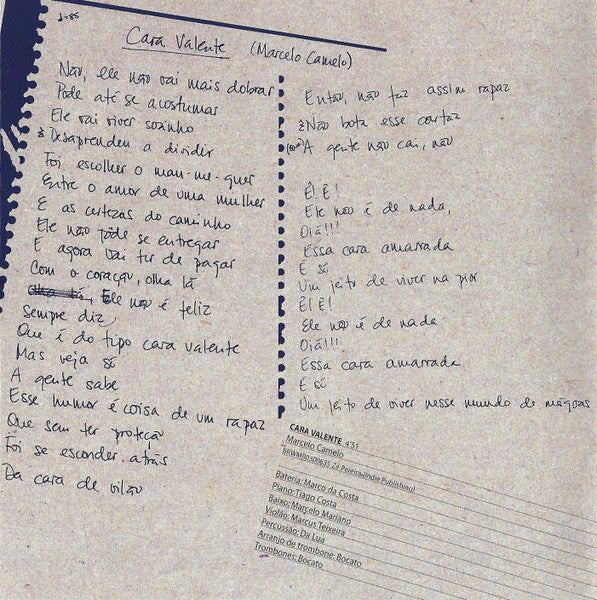 ♩=85
Cara Valente (Marcelo Camelo)
Não, ele não vai mais dobrar
Pode até se acostumar
Ele vai viver sozinho
Desaprendeu a dividir
Foi escolher o mau-me-quer
Entre o amor de uma mulher
E as certezas do caminho
Ele não pôde se entregar
E agora vai ter de pagar
Com o coração, olha lá
Ele não é feliz
Sempre diz
Que é do tipo cara valente
Mas veja só
A gente sabe
Esse humor é coisa de um rapaz
Que sem ter proteção
Foi se esconder atrás
Da cara de vilão
Então, não faz assim rapaz
Não bota esse cartaz
A gente não cai, não
Ê! Ê!
Ele não é de nada,
Oiá!!!
Essa cara amarrada
É só
Um jeito de viver na pior
Ê! Ê!
Ele não é de nada
Oiá!!!
Essa cara amarrada
É só
Um jeito de viver nesse mundo de mágoas
CARA VALENTE 4'51
Marcelo Camelo
Zé Pereira(Indie Publishing)
Bateria: Marco da Costa
Piano: Tiago Costa
Baixo: Marcelo Mariano
Violão: Marcus Teixeira
Percussão: Da Lua
Arranjo de trombone: Bocato
Trombones: Bocato